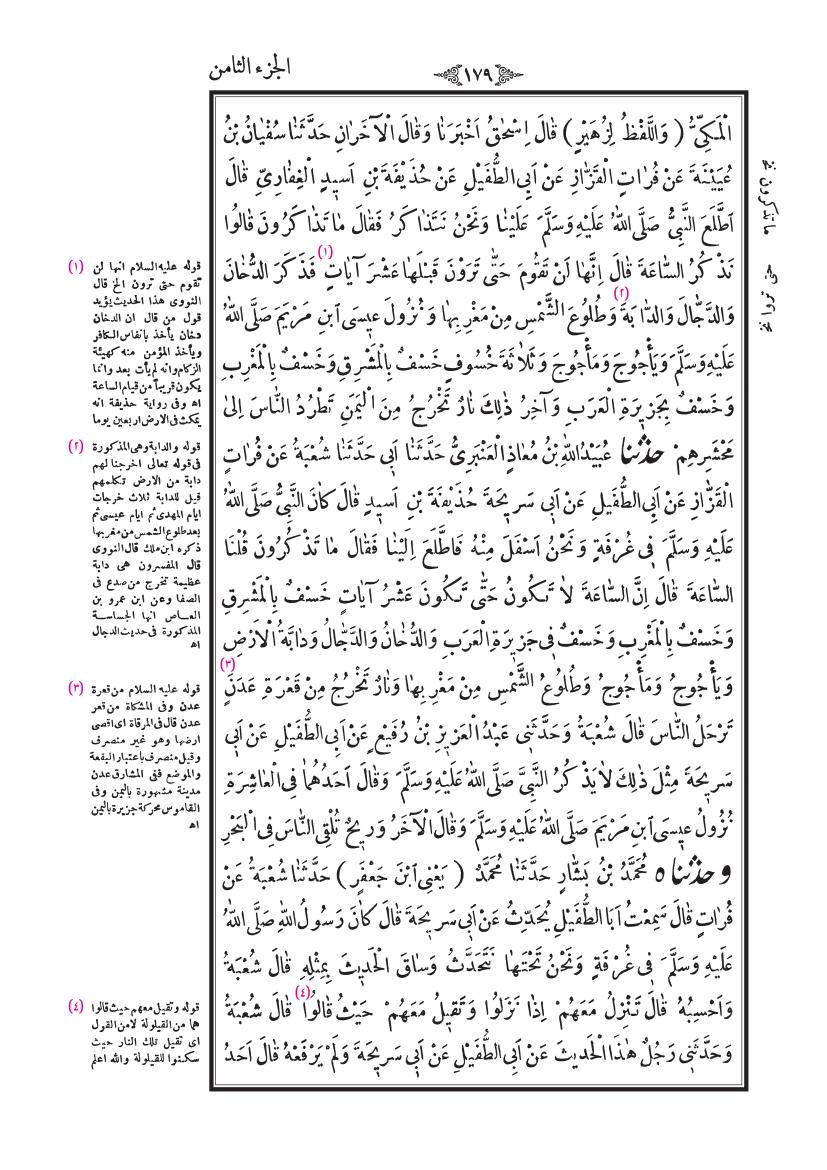 الجزء الثامن
١٧٩
الْمَكِّىُّ ( وَاللَّفْظُ لِزُهَيْرٍ ) قَالَ اِسْحٰقُ اَخْبَرَنَا وَقَالَ الْآخَرٰانِ حَدَّثَنٰا سُفْيٰانُ بْنُ
عُيَيْنَةَ عَنْ فُرٰاتٍ الْقَزّٰازِ عَنْ اَبِى الطُّفَيْلِ عَنْ حُذَيْفَةَ بْنِ اَسيدٍ الْغِفٰارِىِّ قٰالَ
اَطَّلَعَ النَّبِىُّ صَلَّى اللّٰهُ عَلَيْهِ وَسَلَّمَ عَلَيْنٰا وَنَحْنُ نَتَذٰاكَرُ فَقٰالَ مٰا تَذٰاكَرُونَ قٰالُوا
نَذْكُرُ السّٰاعَةَ قٰالَ اِنَّهٰا لَنْ تَقُومَ حَتّٰى تَرَوْنَ قَبْلَهٰا عَشْرَ آيٰاتٍ (١) فَذَكَرَ الدُّخٰانَ
وَالدَّجّٰالَ وَالدّٰابَّةَ (٢) وَطُلُوعَ الشَّمْسِ مِنْ مَغْرِبِهٰا وَنُزُولَ عيسَى ابْنِ مَرْيَمَ صَلَّى اللّٰهُ
عَلَيْهِ وَسَلَّمَ وَيَأْجُوجَ وَمَأْجُوجَ وَثَلٰاثَةَ خُسُوفٍ خَسْفٌ بِالْمَشْرِقِ وَخَسْفٌ بِالْمَغْرِبِ
وَخَسْفٌ بِجَزيرَةِ الْعَرَبِ وَآخِرُ ذٰلِكَ نٰارٌ تَخْرُجُ مِنَ الْيَمَنِ تَطْرُدُ النّٰاسَ اِلىٰ
مَحْشَرِهِمْ حدّثنا عُبَيْدُ اللّٰهِ بْنُ مُعٰاذٍ الْعَنْبَرِىُّ حَدَّثَنٰا اَبى حَدَّثَنٰا شُعْبَةُ عَنْ فُرٰاتٍ
الْقَزّٰازِ عَنْ اَبِى الطُّفَيْلِ عَنْ اَبى سَريحَةَ حُذَيْفَةَ بْنِ اَسيدٍ قٰالَ كٰانَ النَّبِىُّ صَلَّى اللّٰهُ
عَلَيْهِ وَسَلَّمَ فى غُرْفَةٍ وَنَحْنُ اَسْفَلَ مِنْهُ فَاطَّلَعَ اِلَيْنٰا فَقٰالَ مٰا تَذْكُرُونَ قُلْنَا
السّٰاعَةَ قٰالَ اِنَّ السّٰاعَةَ لاٰ تَكُونُ حَتّٰى تَكُونَ عَشْرُ آيٰاتٍ خَسْفٌ بِالْمَشْرِقِ
وَخَسْفٌ بِالْمَغْرِبِ وَخَسْفٌ فى جَزيرَةِ الْعَرَبِ وَالدُّخٰانُ وَالدَّجّٰالُ وَدٰابَّةُ الْاَرْضِ
وَيَأْجُوجُ وَمَأْجُوجُ وَطُلُوعُ الشَّمْسِ مِنْ مَغْرِبِهٰا وَنٰارٌ تَخْرُجُ مِنْ قَعْرَةِ عَدَنٍ (٣)
تَرْحَلُ النّٰاسَ قٰالَ شُعْبَةُ وَحَدَّثَنى عَبْدُ الْعَزيزِ بْنُ رُفَيْعٍ عَنْ اَبِى الطُّفَيْلِ عَنْ اَبى
سَريحَةَ مِثْلَ ذٰلِكَ لاٰيَذْكُرُ النَّبِىَّ صَلَّى اللّٰهُ عَلَيْهِ وَسَلَّمَ وَقٰالَ اَحَدُهُمٰا فِى الْعٰاشِرَةِ
نُزُولُ عيسَى ابْنِ مَرْيَمَ صَلَّى اللّٰهُ عَلَيْهِ وَسَلَّمَ وَقٰالَ الْآخَرُ وَريحٌ تُلْقِى النّٰاسَ فِى الْبَحْرِ
وحدثناه مُحَمَّدُ بْنُ بَشّٰارٍ حَدَّثَنٰا مُحَمَّدٌ ( يَعْنِى ابْنَ جَعْفَرٍ ) حَدَّثَنٰا شُعْبَةُ عَنْ
فُرٰاتٍ قٰالَ سَمِعْتُ اَبَا الطُّفَيْلِ يُحَدِّثُ عَنْ اَبى سَريحَةَ قٰالَ كٰانَ رَسُولُ اللّٰهِ صَلَّى اللّٰهُ
عَلَيْهِ وَسَلَّمَ فى غُرْفَةٍ وَنَحْنُ تَحْتَهٰا نَتَحَدَّثُ وَسٰاقَ الْحَديثَ بِمِثْلِهِ قٰالَ شُعْبَةُ
وَاَحْسِبُهُ قٰالَ تَنْزِلُ مَعَهُمْ اِذٰا نَزَلُوا وَتَقيلُ مَعَهُمْ حَيْثُ قٰالُوا (٤) قٰالَ شُعْبَةُ
وَحَدَّثَنى رَجُلٌ هٰذَا الْحَديثَ عَنْ اَبِى الطُّفَيْلِ عَنْ اَبى سَريحَةَ وَلَمْ يَرْفَعْهُ قٰالَ اَحَدُ
ماتذكرون نخ
حتى تروا نخ
(١) قوله عليه السلام انها لن
تقوم حتى ترون الخ قال
النووى هذا الحديث يؤيد
قول من قال ان الدخان
دخان يأخذ بانفاس الكافر
ويأخذ المؤمن منه كهيئة
الزكام وانه لم يأت بعد وانما
يكون قريباً من قيام الساعة
اه وفى رواية حذيفة انه
يمكث فى الارض اربعين يوما
(٢) قوله والدابة وهى المذكورة
فى قوله تعالى اخرجنا لهم
دابة من الارض تكلمهم
قيل للدابة ثلاث خرجات
ايام المهدى ثم ايام عيسى ثم
بعد طلوع الشمس من مغربها
ذكره ابن ملك قال النووى
قال المفسرون هى دابة
عظيمة تخرج من صدع فى
الصفا وعن ابن عمرو بن
العـاص انها الجساسـة
المذكورة فى حديث الدجال
اه
(٣) قوله عليه السلام من قعرة
عدن وفى المشكاة من قعر
عدن قال فى المرقاة اى اقصى
ارضها وهو غير منصرف
وقيل منصرف باعتبار البقعة
والموضع ففى المشارق عدن
مدينة مشهورة باليمن وفى
القاموس محركة جزيرة باليمن
اه
(٤) قوله وتقيل معهم حيث قالوا
هما من القيلولة لامن القول
اى تقيل تلك النار حيث
سكـنوا للقيلولة والله اعلم